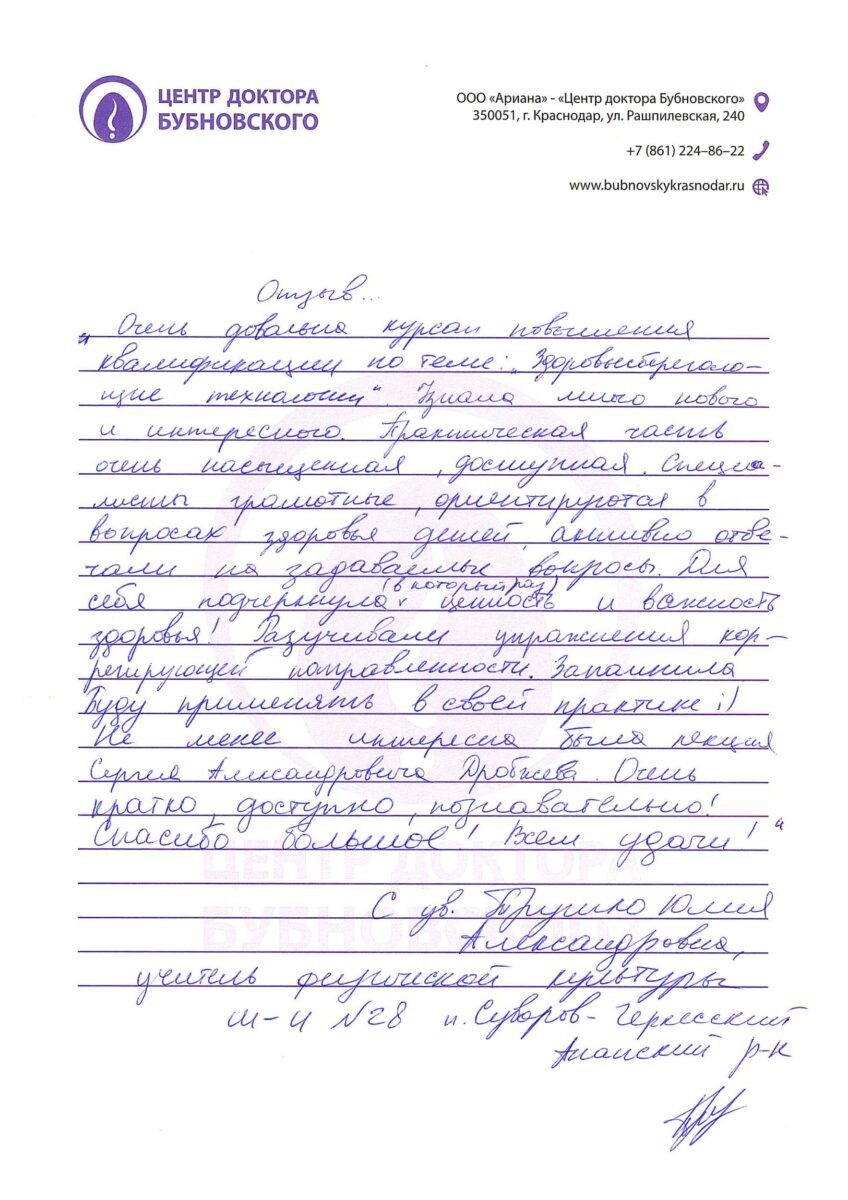 ЦЕНТР ДОКТОРА
БУБНОВСКОГО
ООО «Ариана» - «Центр доктора Бубновского»
350051, г. Краснодар, ул. Рашпилевская, 240
+7 (861) 224–86–22
www.bubnovskykrasnodar.ru
Отзыв...
„ Очень довольна курсам повышения
квалификации по теме: „Здоровьесберегаю-
щие технологии“. Узнала много нового
и интересного. Практическая часть
очень насыщенная, доступная. Специа-
листы грамотные, ориентируются в
вопросах здоровья детей, активно отве-
чали на задаваемые вопросы. Для
себя подчеркнула (в который раз) ценность и важность
здоровья! Разучивали упражнения кор-
регирующей направленности. Запомнила
Буду применять в своей практике :)
Не менее интересна была лекция
Сергея Александровича Дробжева. Очень
кратко, доступно, познавательно!
Спасибо большое! Всем удачи! “
ЦЕНТР ДОКТОРА
БУБНОВСКОГО
С ув. Юлия
Александровна,
учитель физической культуры
ш-и №28 п. Суворов-Черкесский
Анапский р-н